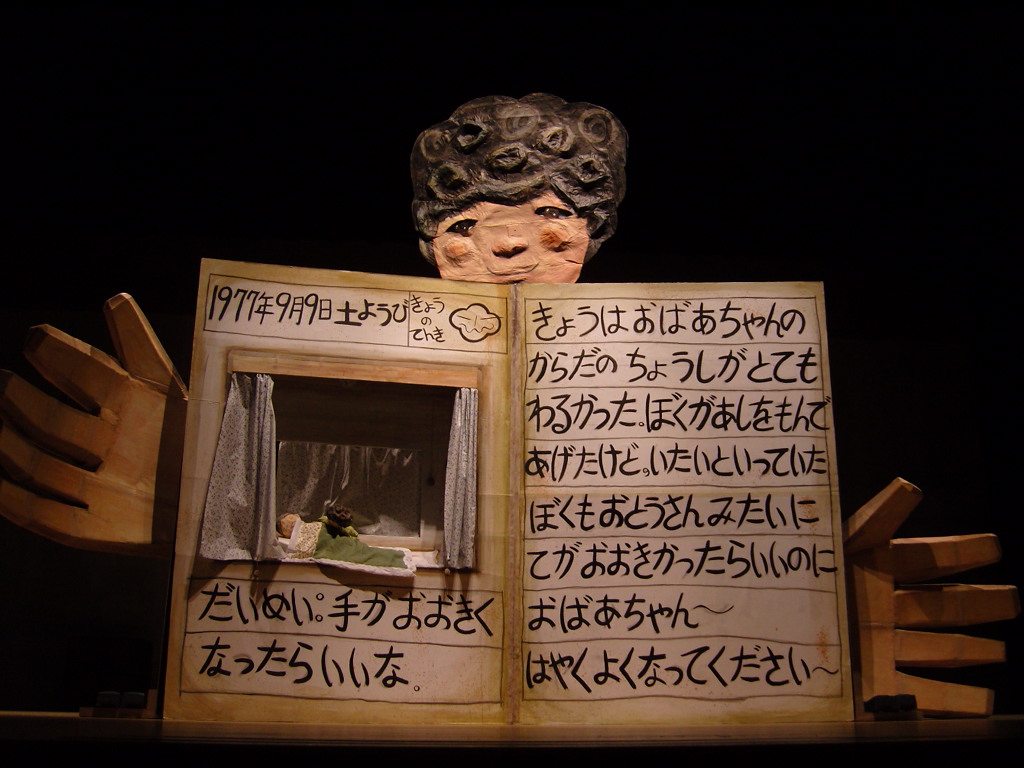 1977年9月9日 土ようび
きょう
の
てんき
だいめい。手がおおきく
なったらいいな。
きょうはおばあちゃんの
からだの ちょうしがとても
わるかった。ぼくがあしをもんで
あげたけど。いたいといっていた
ぼくもおとうさんみたいに
てがおおきかったらいいのに
おばあちゃん〜
はやくよくなってください〜